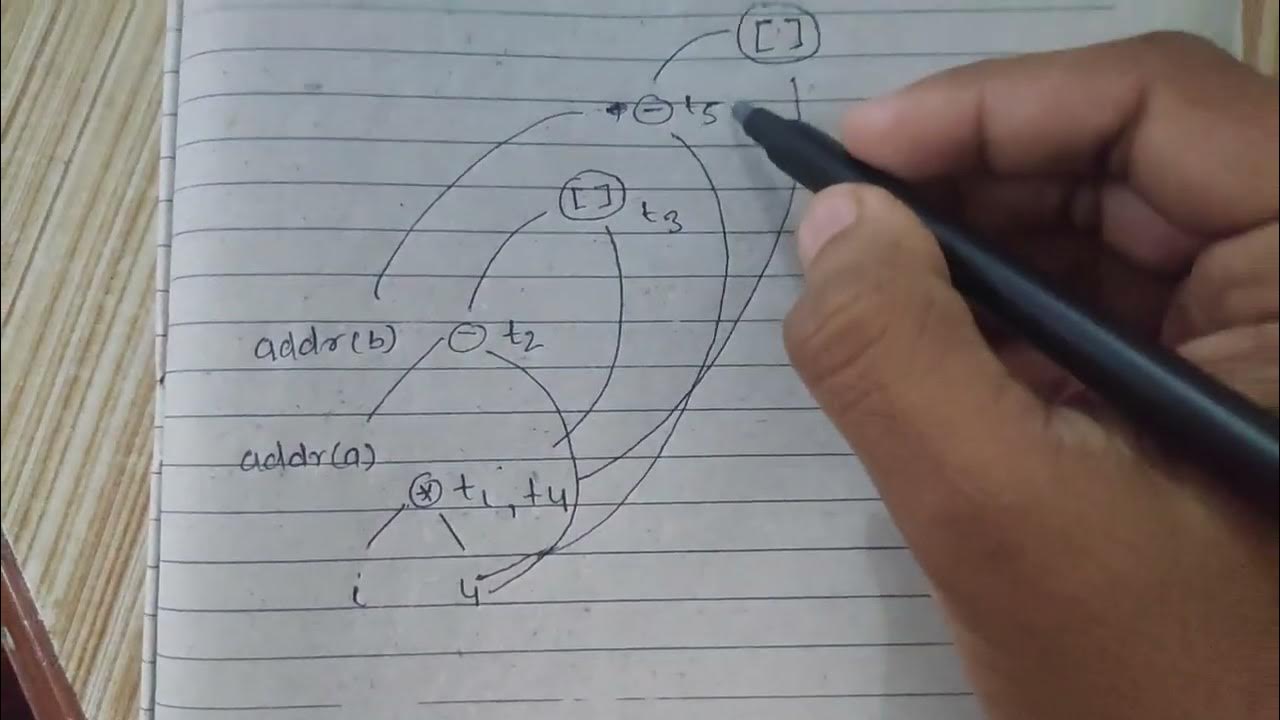 [ ]
- t5
[ ] t3
addr(b) - t2
addr(a)
* t1, t4
i 4